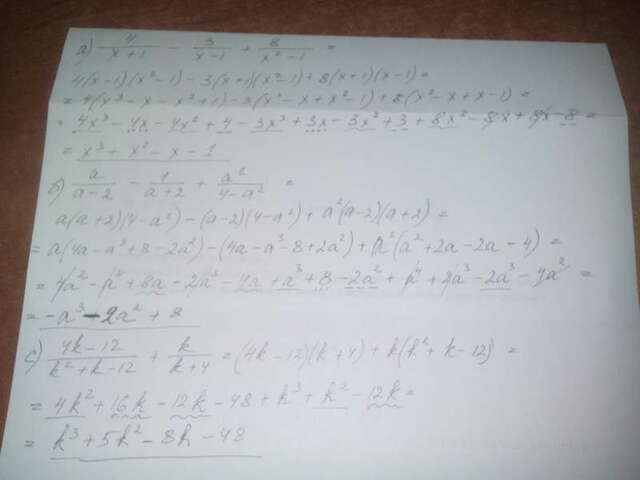 а) 4/(x+1) − 3/(x−1) + 8/(x²−1) =
4(x−1)(x²−1) − 3(x+1)(x²−1) + 8(x+1)(x−1) =
= 4(x³ − x − x² + 1) − 3(x³ − x + x² − 1) + 8(x² − x + x − 1) =
= 4x³ − 4x − 4x² + 4 − 3x³ + 3x − 3x² + 3 + 8x² − 8x + 8x − 8 =
= x³ + x² − x − 1
б) a/(a−2) − 1/(a+2) + a²/(4−a²) =
a(a+2)(4−a²) − (a−2)(4−a²) + a²(a−2)(a+2) =
= a(4a − a³ + 8 − 2a²) − (4a − a³ − 8 + 2a²) + a²(a² + 2a − 2a − 4) =
= 4a² − a⁴ + 8a − 2a³ − 4a + a³ + 8 − 2a² + a⁴ + 2a³ − 2a³ − 4a² =
= −a³ − 2a² + 8
c) (4k−12)/(k²+k−12) + k/(k+4) = (4k−12)(k+4) + k(k² + k − 12) =
= 4k² + 16k − 12k − 48 + k³ + k² − 12k =
= k³ + 5k² − 8k − 48